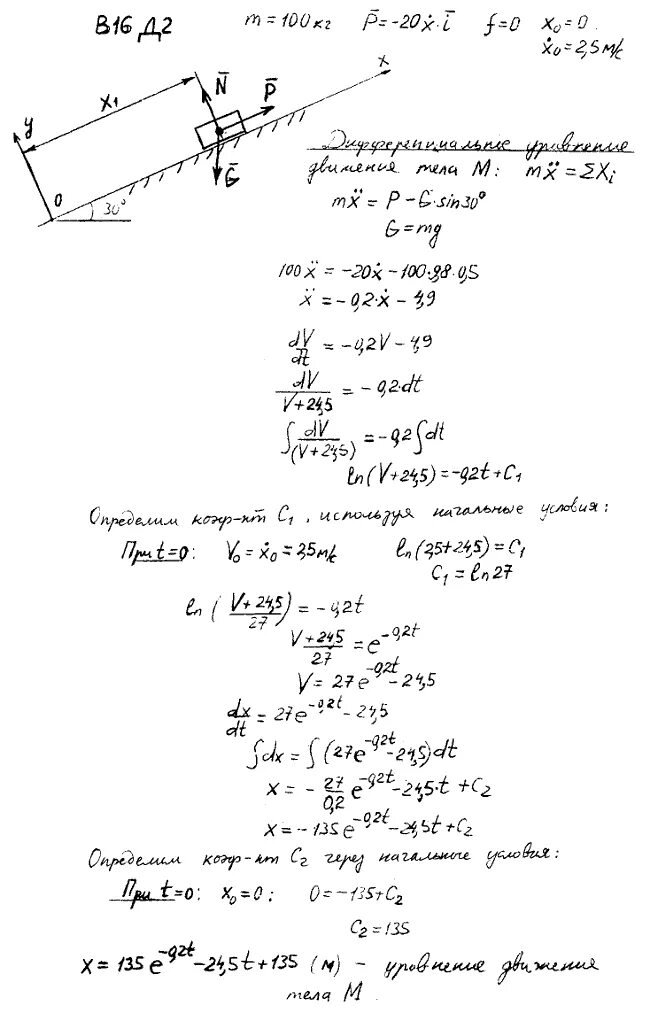 В16 Д2 m=100кг P̄=-20ẋ·ī f=0 x₀=0
ẋ₀=2,5м/с
x
N̄
P̄
X₁
y
Ḡ
0
30°
Дифференциальное уравнение
движения тела М: mẍ=ΣXᵢ
mẍ=P-G·sin30°
G=mg
100ẍ=-20ẋ-100·9,8·0,5
ẍ=-0,2·ẋ-4,9
dV/dt=-0,2V-4,9
dV/(V+24,5)=-0,2·dt
∫dV/(V+24,5)=-0,2∫dt
ln(V+24,5)=-0,2t+C₁
Определим коэф-нт C₁, используя начальные условия:
При t=0: V₀=ẋ₀=2,5м/с ln(2,5+24,5)=C₁
C₁=ln27
ln((V+24,5)/27)=-0,2t
(V+24,5)/27=e^(-0,2t)
V=27e^(-0,2t)-24,5
dx/dt=27e^(-0,2t)-24,5
∫dx=∫(27e^(-0,2t)-24,5)dt
x=-27/0,2 e^(-0,2t)-24,5·t+C₂
x=-135e^(-0,2t)-24,5t+C₂
Определим коэф-нт C₂ через начальные условия:
При t=0: x₀=0; 0=-135+C₂
C₂=135
x=135e^(-0,2t)-24,5t+135 (м) - уровнение движения
тела М.